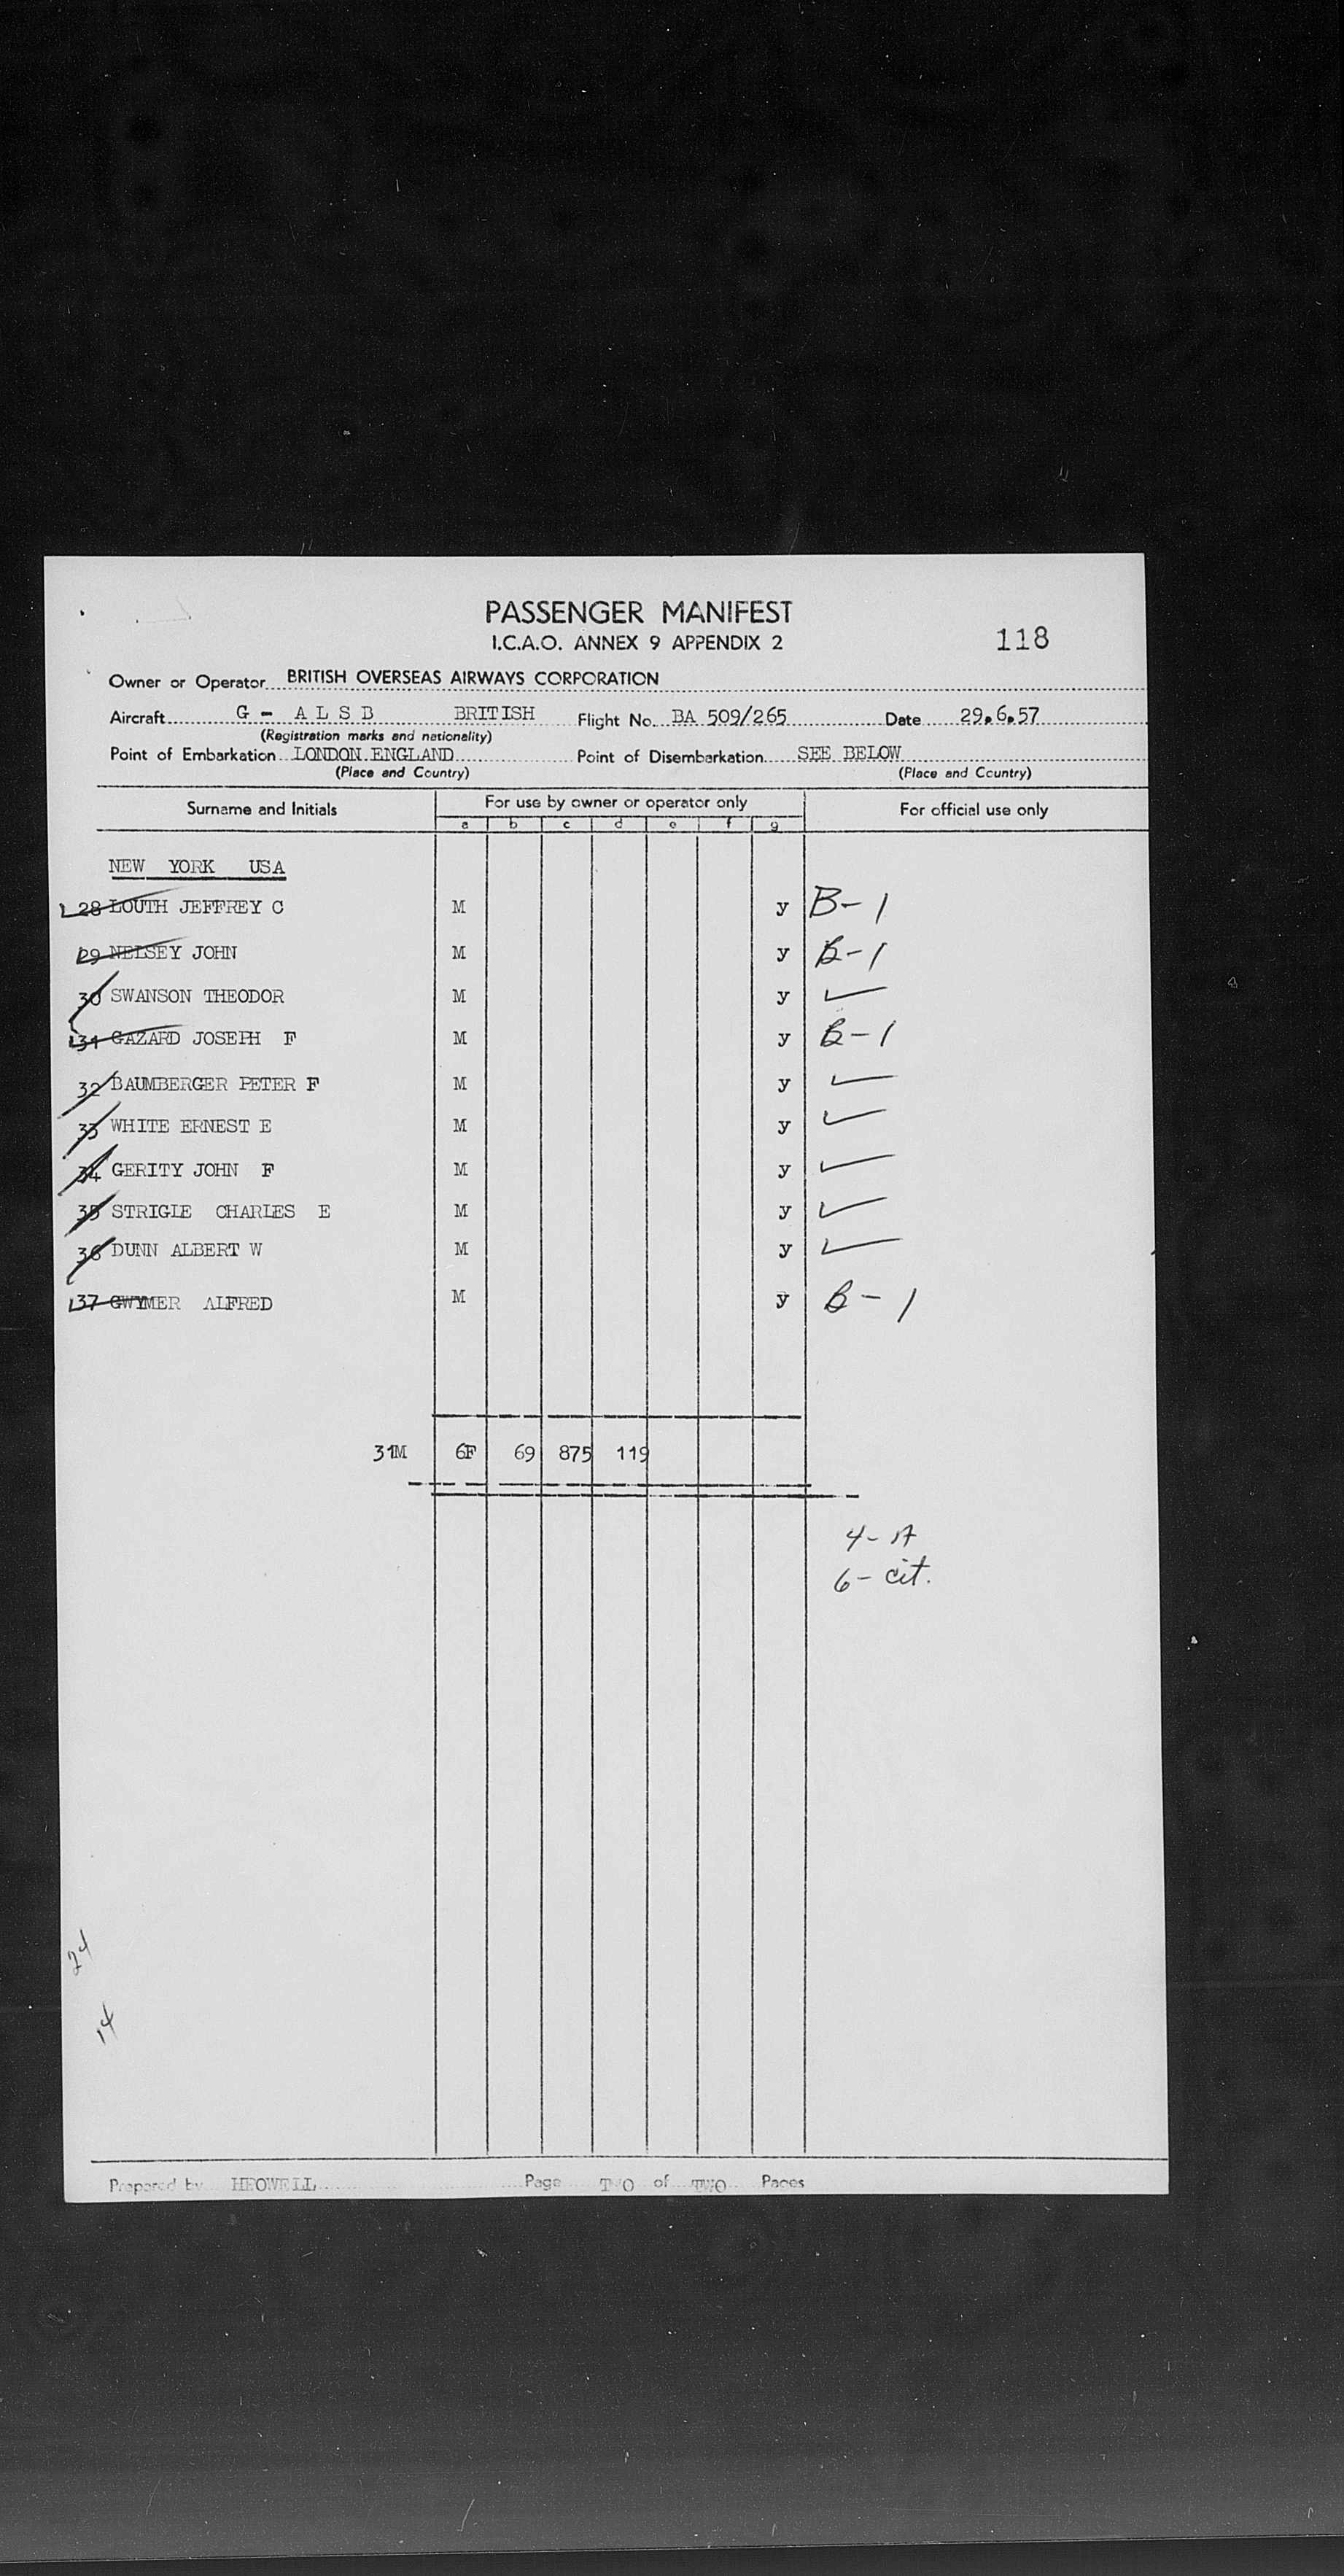 PASSENGER MANIFEST
I.C.A.O. ANNEX 9 APPENDIX 2
118
Owner or Operator BRITISH OVERSEAS AIRWAYS CORPORATION
Aircraft G - A L S B BRITISH Flight No. BA 509/265 Date 29.6.57
(Registration marks and nationality)
Point of Embarkation LONDON ENGLAND Point of Disembarkation SEE BELOW
(Place and Country) (Place and Country)
Surname and Initials For use by owner or operator only For official use only
a b c d e f g
NEW YORK USA
28 LOUTH JEFFREY C M y B-1
29 NELSEY JOHN M y B-1
30 SWANSON THEODOR M y ✓
31 GAZARD JOSEPH F M y B-1
32 BAUMBERGER PETER F M y ✓
33 WHITE ERNEST E M y ✓
34 GERITY JOHN F M y ✓
35 STRIGLE CHARLES E M y ✓
36 DUNN ALBERT W M y ✓
37 GWYMER ALFRED M y B-1
31M 6F 69 875 119
4-A
6-cit.
24
14
Prepared by Page TWO of TWO Pages